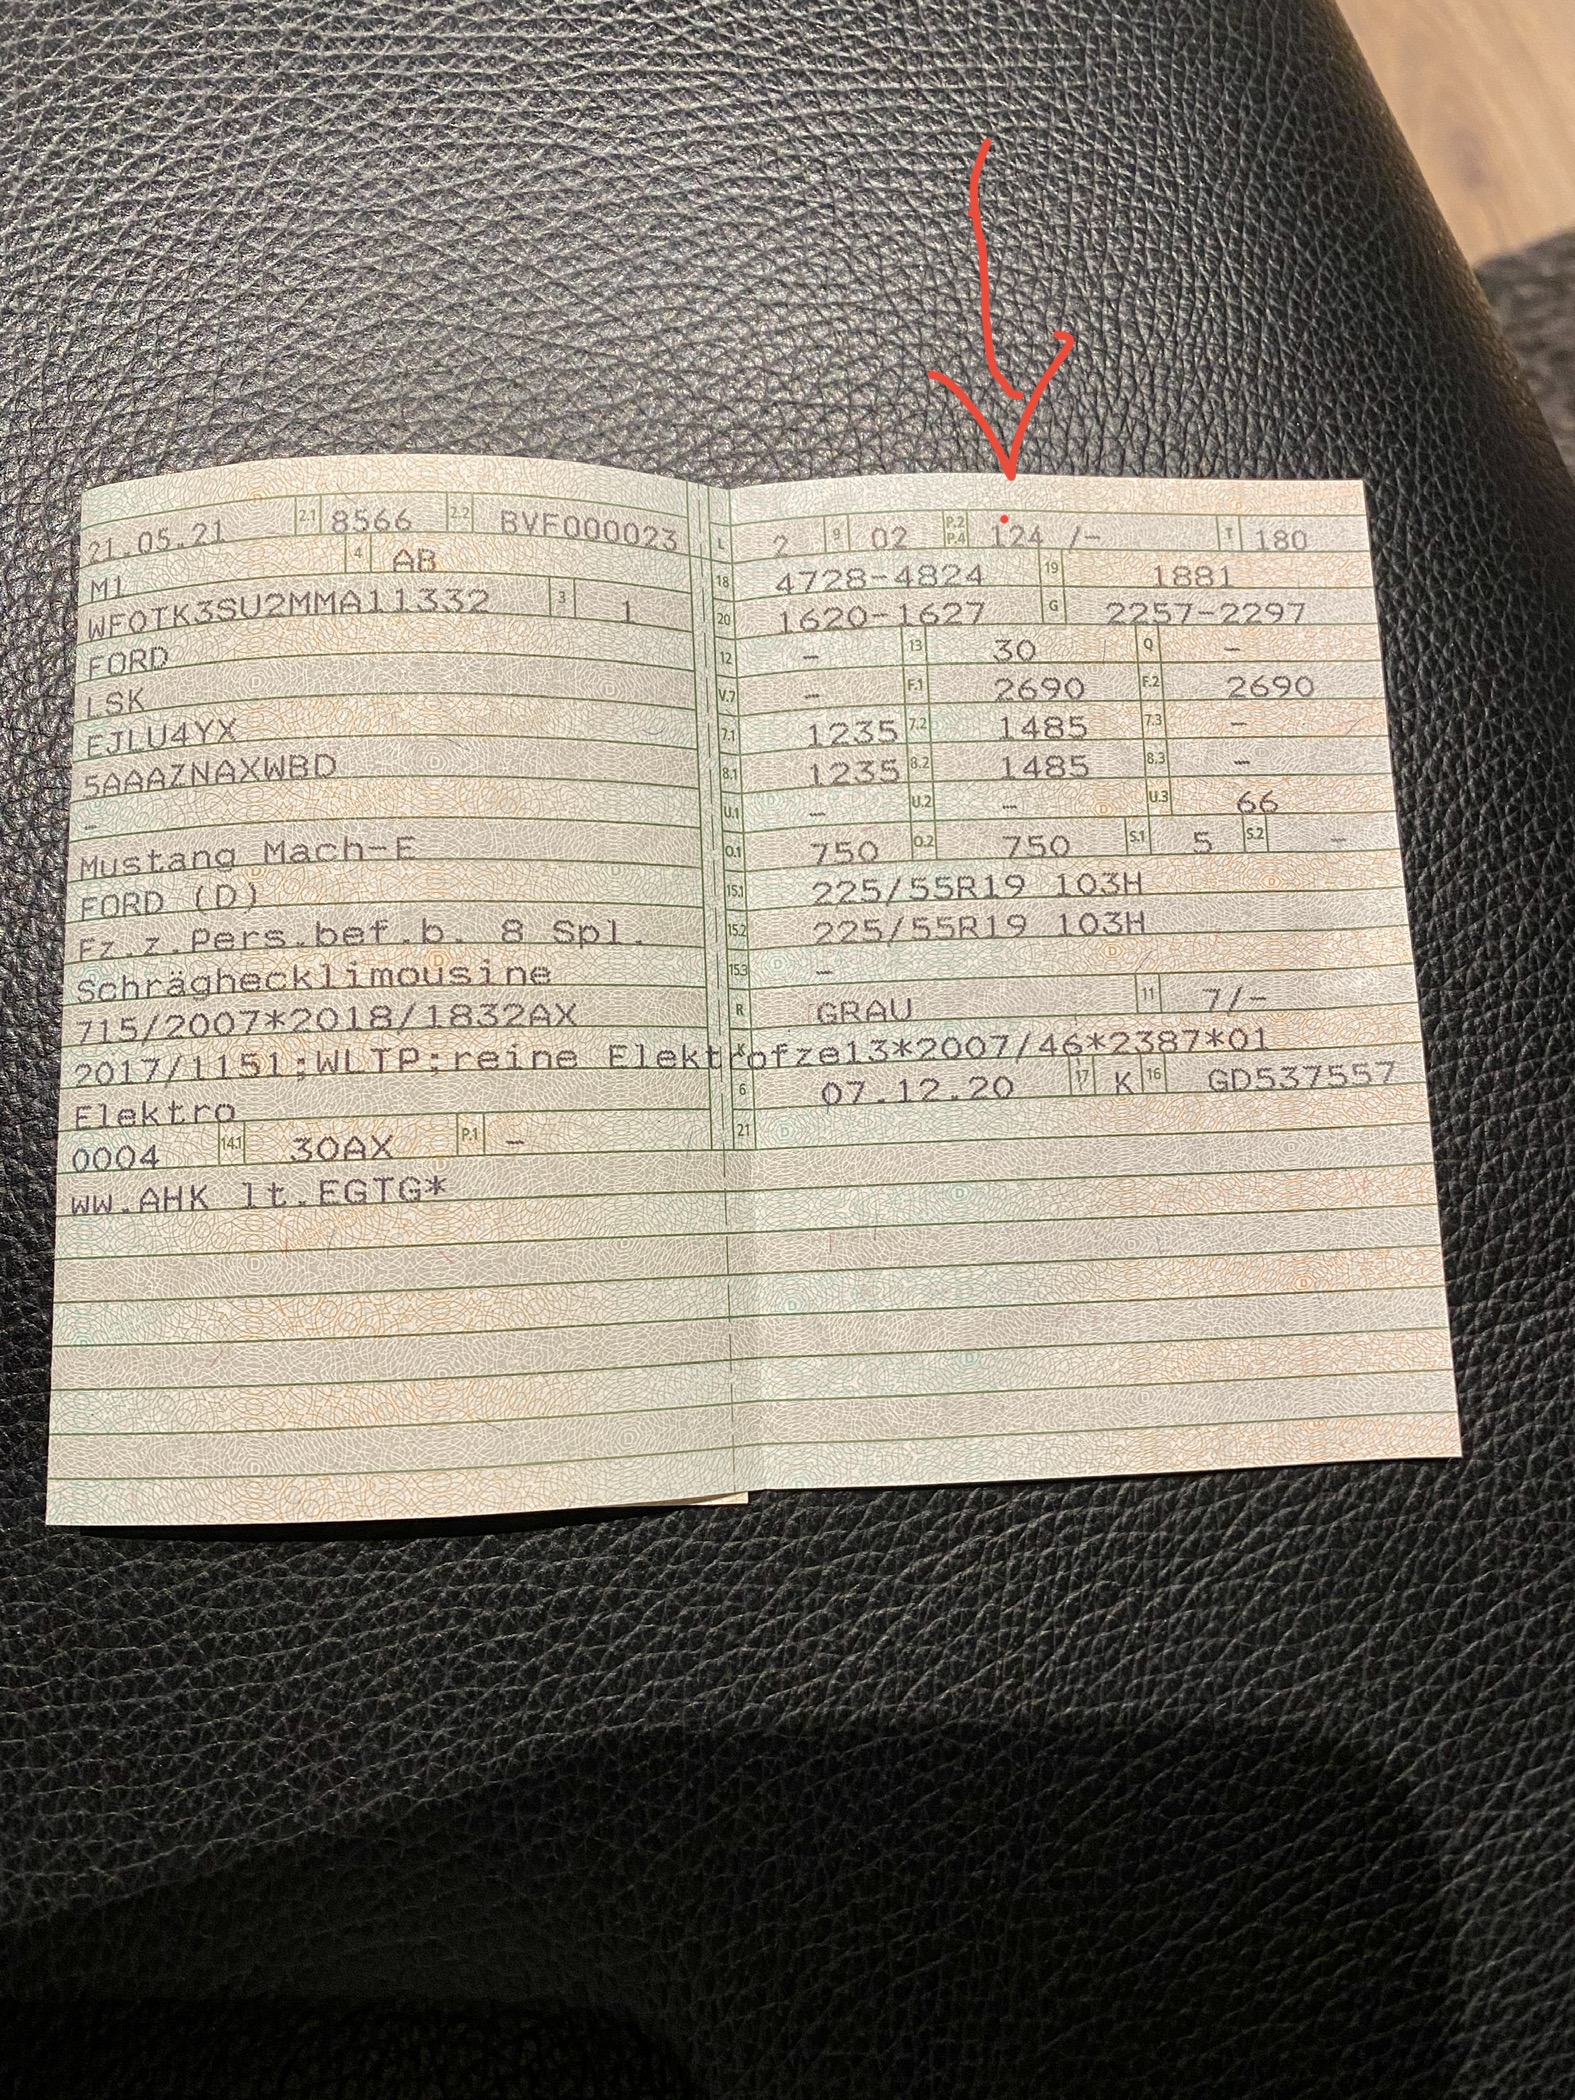 21.05.21 2.1 8566 2.2 BVF000023
M1 4 AB
WF0TK3SU2MMA11332 3 1
FORD
LSK
EJLU4YX
5AAAZNAXWBD
–
Mustang Mach-E
FORD (D)
Fz.z.Pers.bef.b. 8 Spl.
Schräghecklimousine
715/2007*2018/1832AX
2017/1151;WLTP;reine Elektrofz
Elektro
0004 14.1 30AX P.1 –
WW.AHK lt.EGTG*
L 2 9 02 P.2 P.4 124 /– T 180
18 4728-4824 19 1881
20 1620-1627 G 2257-2297
12 – 13 30 Q –
V.7 – F.1 2690 F.2 2690
7.1 1235 7.2 1485 7.3 –
8.1 1235 8.2 1485 8.3 –
U.1 – U.2 – U.3 66
O.1 750 O.2 750 S.1 5 S.2 –
15.1 225/55R19 103H
15.2 225/55R19 103H
15.3 –
R GRAU 11 7/–
K e13*2007/46*2387*01
6 07.12.20 17 K 16 GD537557
21